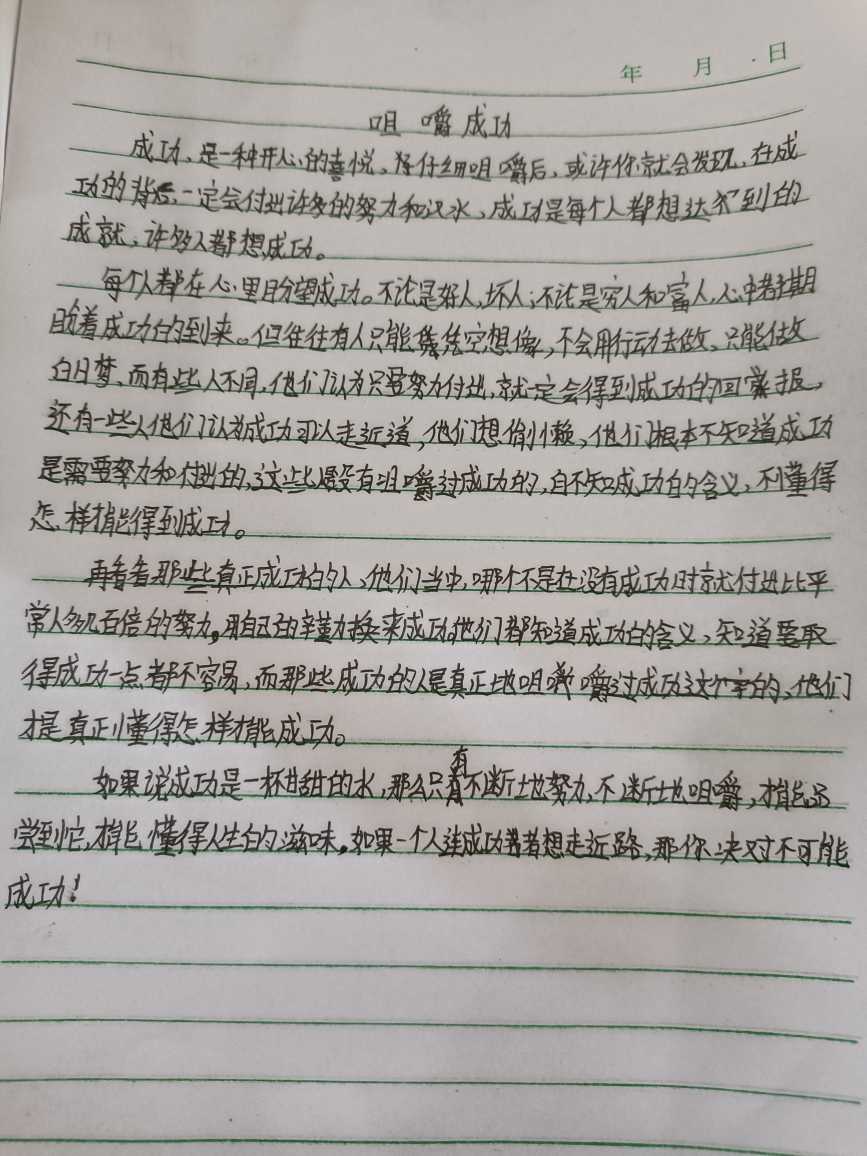 年 月 日
咀嚼成功
成功、是一种开心的喜悦、待仔细咀嚼后、或许你就会发现、在成
功的背后、一定会付出许多的努力和汉水、成功是每个人都想达到的
成就、许多人都想成功。
每个人都在心里盼望成功。不论是好人,坏人;不论是穷人和富人,心中都期
盼着成功的到来。但往往有人只能凭空想像,不会用行动去做、只能做
白日梦、而有些人不同,他们认为只要努力付出,就一定会得到成功的回报,
还有一些人他们认为成功可以走近道,他们想偷懒,他们根本不知道成功
是需要努力和付出的,这些是没有咀嚼过成功的,自不知成功的含义、不懂得
怎样才能得到成功。
再看看那些真正成功的人、他们当中,哪个不是在没有成功时就付进比平
常人多几百倍的努力,用自己的辛勤换来成功他们都知道成功的含义、知道要取
得成功一点都不容易,而那些成功的人是真正地咀嚼过成功这个字的、他们
才是真正懂得怎样才能成功。
如果说成功是一杯甘甜的水,那么只有不断地努力,不断地咀嚼,才能品
尝到它,才能懂得人生的滋味,如果一个人连成功都想走近路,那你决对不可能
成功!